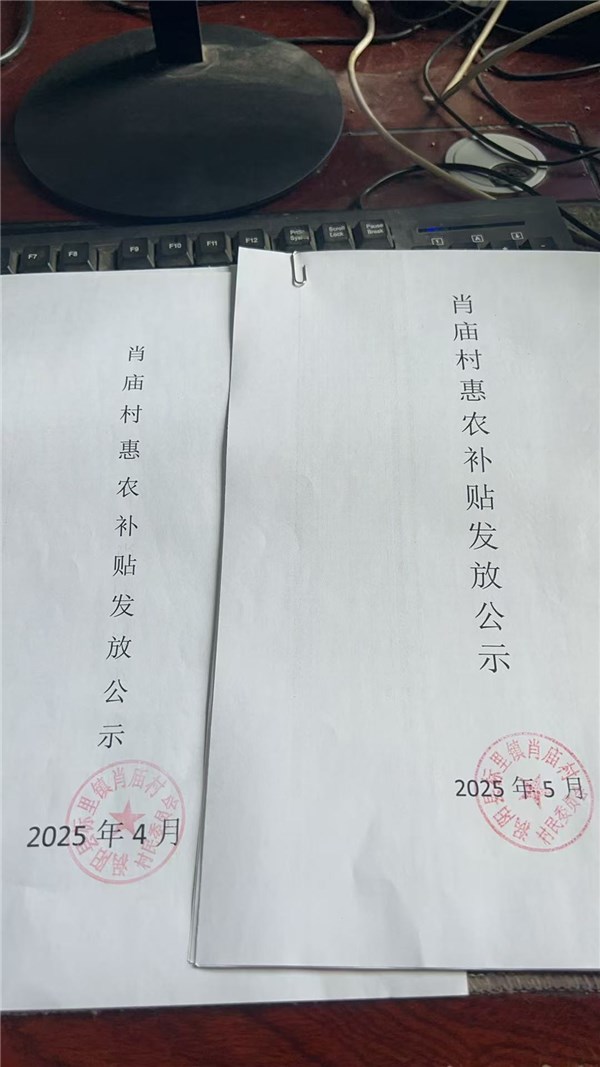 F7
F8
F9
F10
F11
F12
Scroll
Lock
Pause
Break
1
A
肖庙村惠农补贴发放公示
2025 年 4 月
涡阳县标里镇肖庙村
村民委员会
肖庙村惠农补贴发放公示
2025 年 5 月
涡阳县标里镇肖庙村
村民委员会